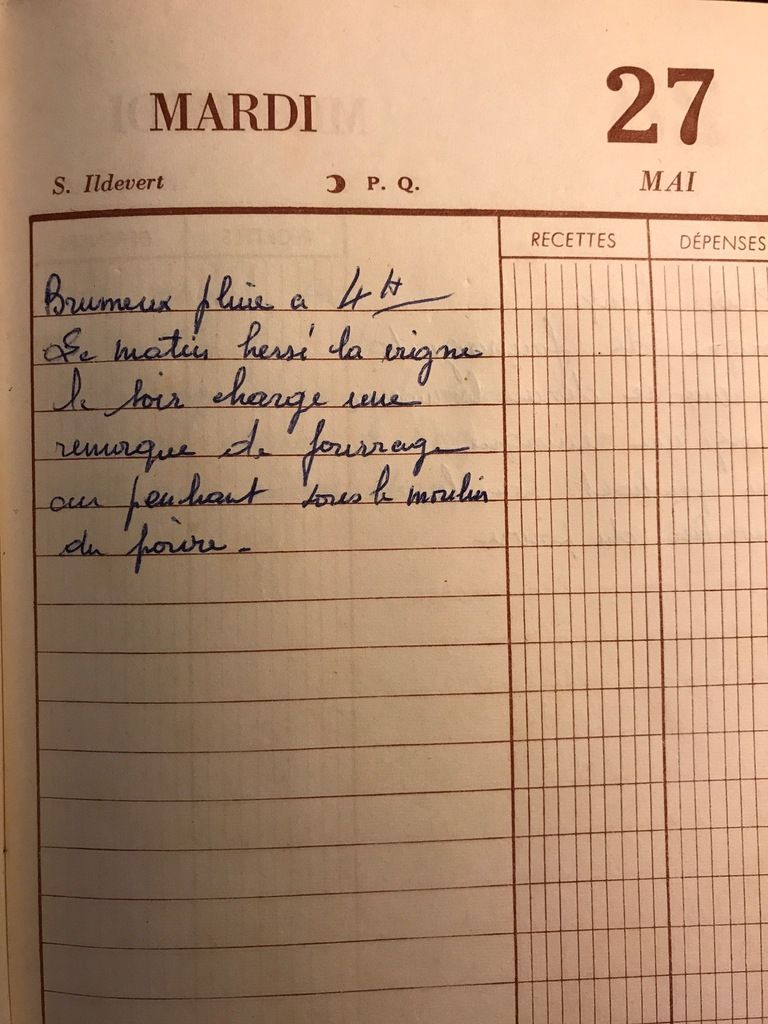 MARDI 27
S. Ildevert P. Q. MAI
RECETTES DÉPENSES
Brumeux pluie a 4 H
Le matin hersé la vigne
le soir charge une
remorque de fourrage
au penchant sous le moulin
du poivre.